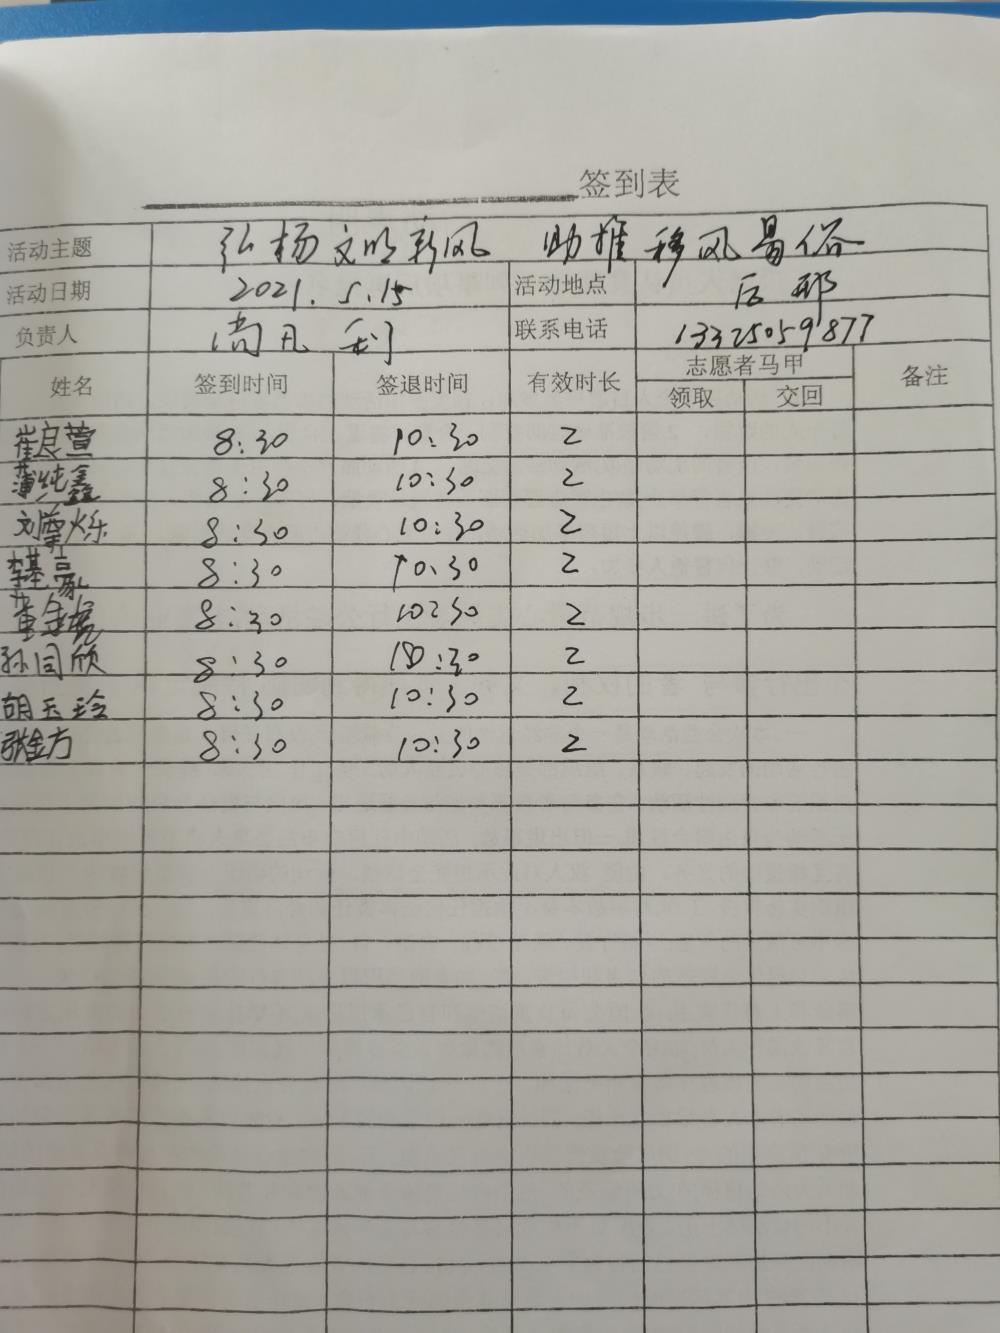 签到表
活动主题 弘杨文明新风 助推移风易俗
活动日期 2021.5.15 活动地点 后邢
负责人 尚凡利 联系电话 13325059877
姓名 签到时间 签退时间 有效时长 志愿者马甲 备注
领取 交回
崔良萱 8:30 10:30 2
薄纯鑫 8:30 10:30 2
刘擎烁 8:30 10:30 2
李基豪 8:30 10:30 2
8:30 10:30 2
孙同欣 8:30 10:30 2
胡玉玲 8:30 10:30 2
张金方 8:30 10:30 2